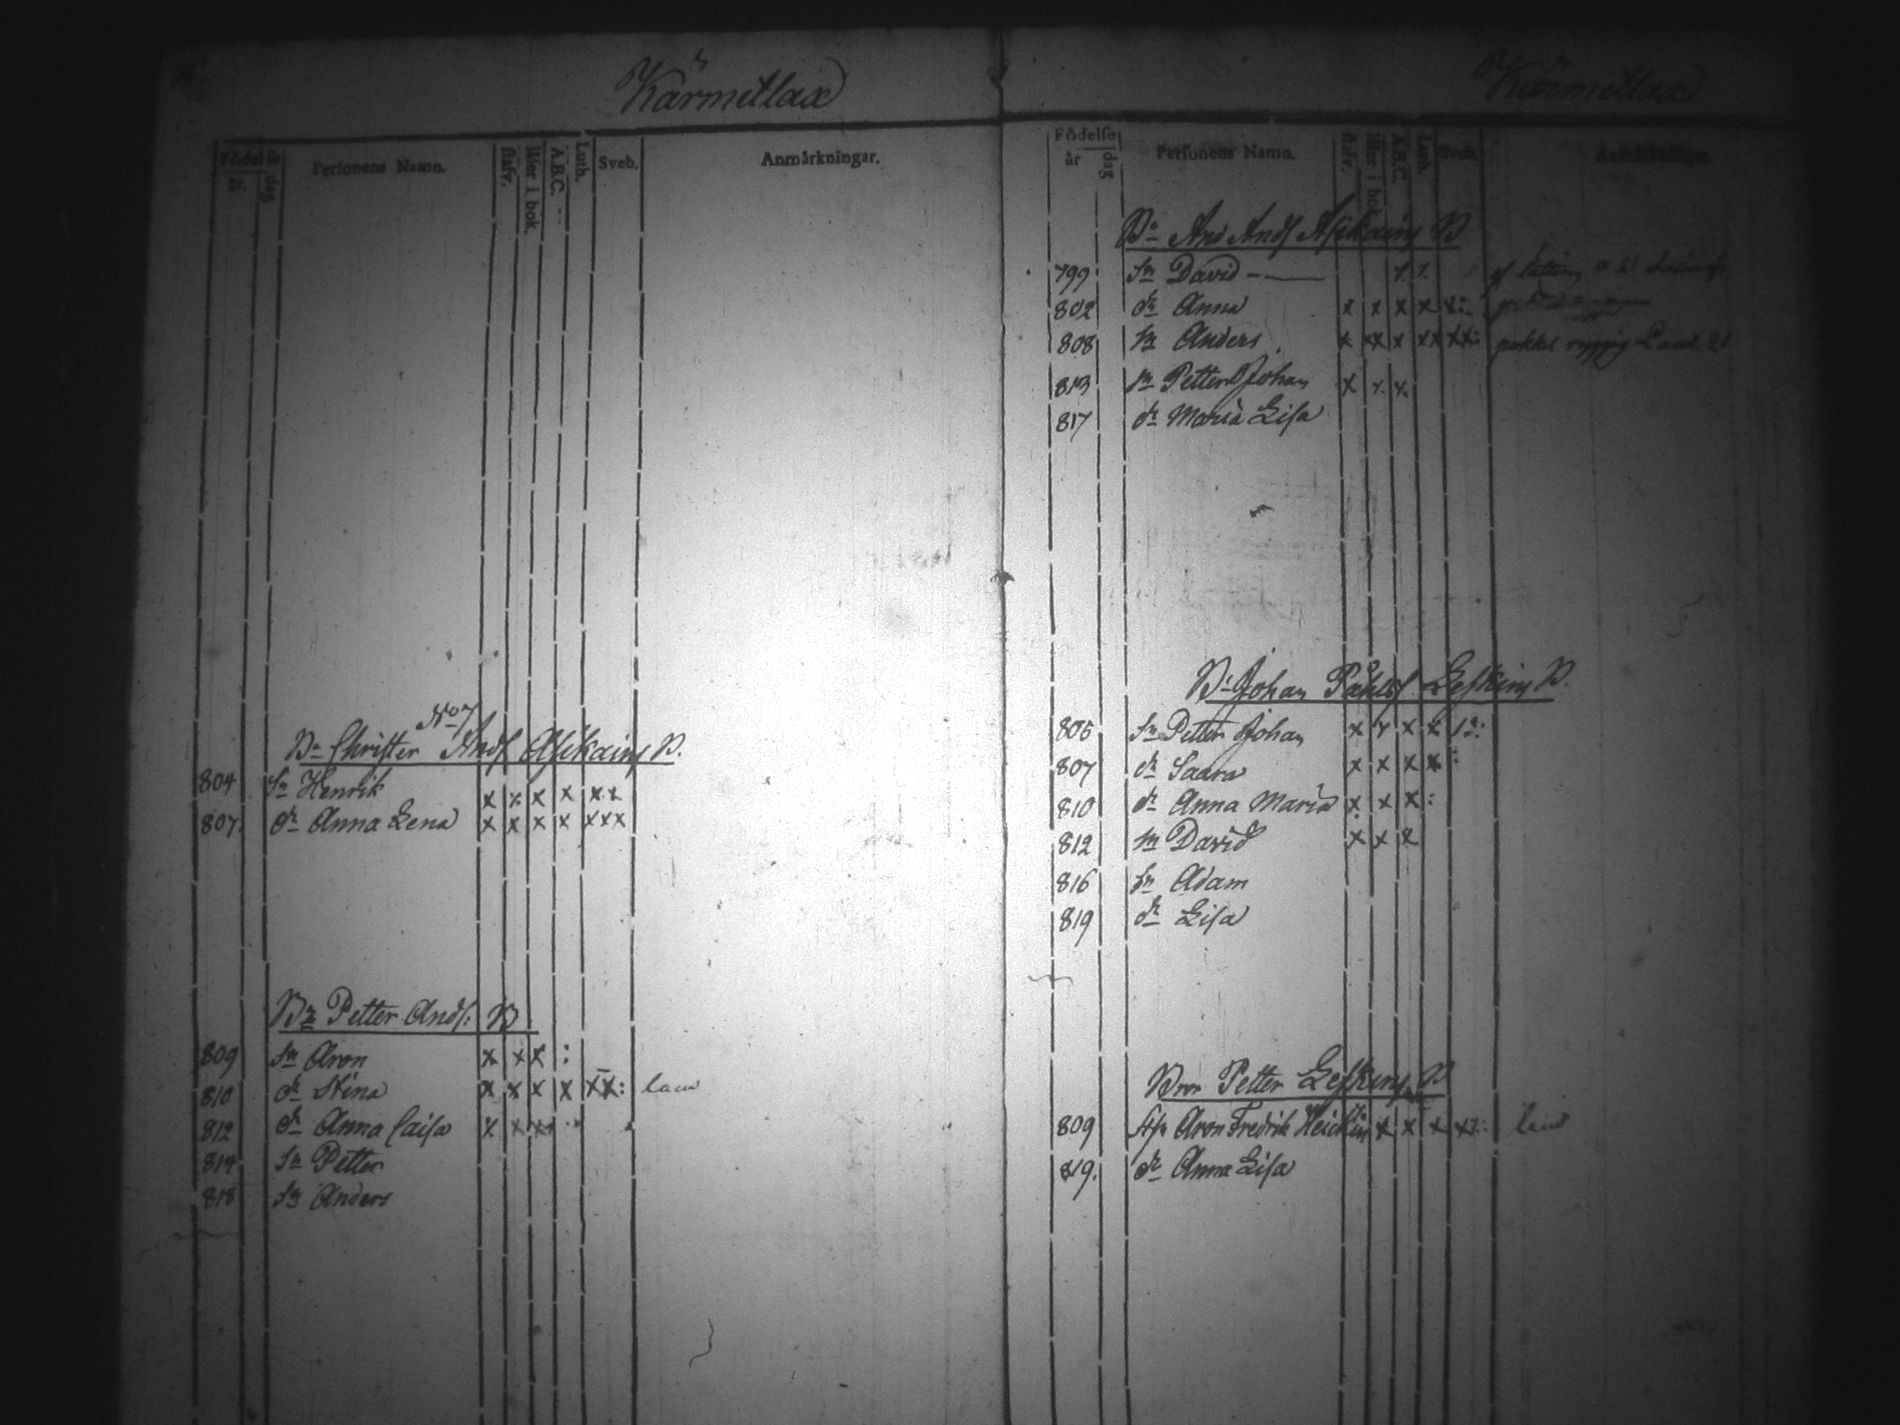 Kärmitlax
Födelse
år. dag
Personens Namn.
stafv.
läser i bok.
A.B.C.
Luth.
Sveb.
Anmärkningar.
No 7
Bn Christer Ands Asikains B.
804 Sn Henrik x x x x x x
807. dr Anna Lena x x x x x x x
Bn Petter Ands: B
809 Sn Aron x x x :
810 dr Stina x x x x x x :
812 dr Anna Caisa x x x x
814 Sn Petter
818 Sn Anders
Kärmitlax
Födelse
år dag
Personens Namn.
stafv.
läser i bok.
A.B.C.
Luth.
Sveb.
Anmärkningar.
Bn And Ands Asikains B
799 Sn David - x x
802 dr Anna x x x x x :
808 Sn Anders x x x x x x x x :
813 Sn Petter Johan x x x
817 dr Maria Lisa
Bn Johan Påhls Leskins B.
805 Sn Petter Johan x x x x
807 dr Saara x x x x :
810 dr Anna Maria x x x :
812 Sn David x x x
816 Sn Adam
819 dr Lisa
Bror Petter Leskins B
809 Aron Fredrik x x x x
819. dr Anna Lisa